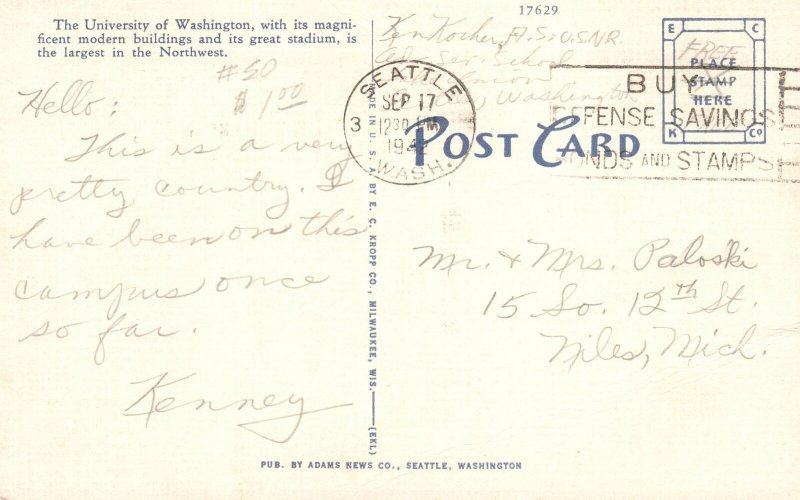 The University of Washington, with its magni-
ficent modern buildings and its great stadium, is
the largest in the Northwest.
#50
$1.00
Hello:
This is a very
pretty country. I
have been on this
campus once
so far.
Kenney
MADE IN U. S. A. BY E. C. KROPP CO., MILWAUKEE, WIS.
(EKL)
17629
Ken Kocher, A.S. U.S.N.R.
Ser. School
Washington
FREE
E C
PLACE
STAMP
HERE
K CO
SEATTLE
SEP 17
12 30 PM
1942
WASH.
3
BUY
DEFENSE SAVINGS
BONDS AND STAMPS
POST CARD
Mr. & Mrs. Paloski
15 So. 12th St.
Niles, Mich.
PUB. BY ADAMS NEWS CO., SEATTLE, WASHINGTON